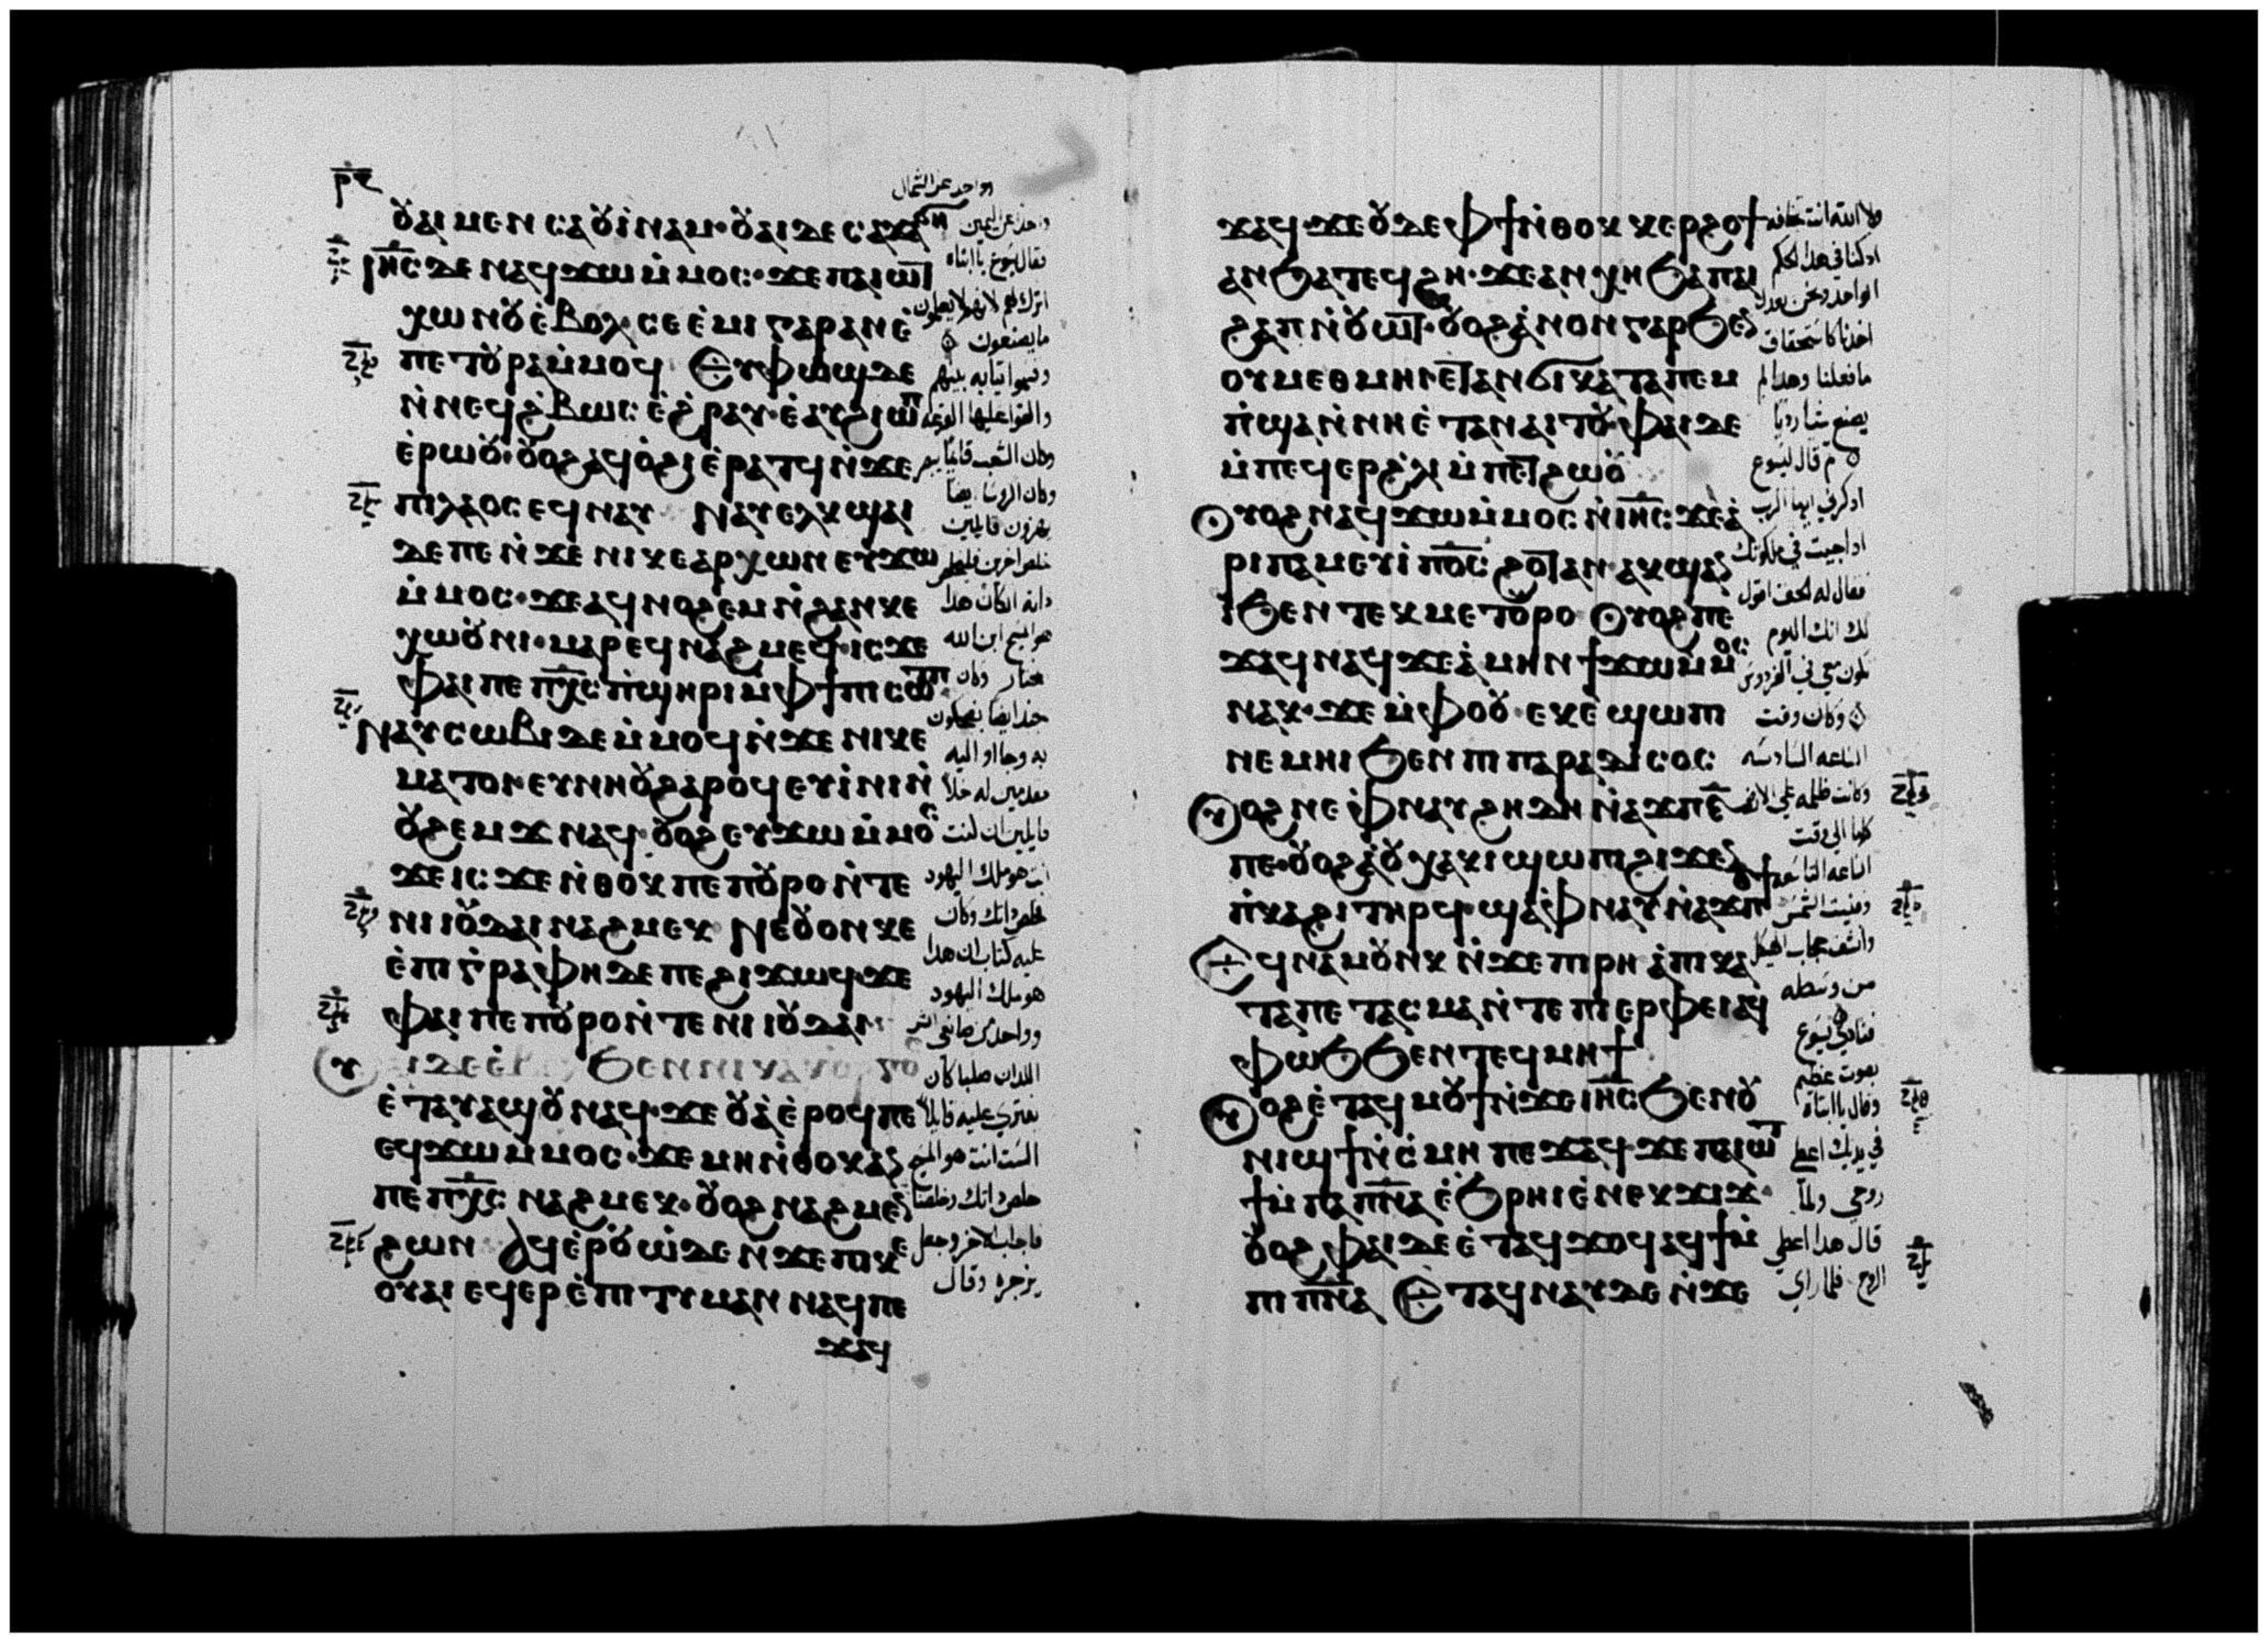 ⲟⲩⲁⲓ ⲙⲉⲛ ⲥⲁⲟⲩⲓ̀ⲛⲁⲙ· ⲟⲩⲁⲓ ⲇⲉ ⲥⲁϫⲁϭⲏ
ⲓⲏ̅ⲥ̅ ⲇⲉ ⲛⲁϥϫⲱ ⲙ̀ⲙⲟⲥ· ϫⲉ ⲡⲁⲓⲱⲧ
ⲭⲱ ⲛⲱⲟⲩ ⲉ̀ⲃⲟⲗ ⲥⲉⲉ̀ⲙⲓ ⲅⲁⲣ ⲁⲛ ⲉ̀
ⲡⲉⲧⲟⲩⲣⲁ ⲙ̀ⲙⲟϥ ⲉⲩⲫⲱϣ ⲇⲉ
ⲛ̀ⲛⲉϥϩ̀ⲃⲱⲥ ⲉ̀ϩ̀ⲣⲁⲩ· ⲉ̀ⲁⲩϩⲓⲱⲡ
ⲉ̀ⲣⲱⲟⲩ· ⲟⲩⲟϩ ⲁϥⲟ̀ϩⲓ ⲉ̀ⲣⲁⲧϥ ⲛ̀ϫⲉ
ⲡⲓⲗⲁⲟⲥ ⲉϥⲛⲁⲩ ⲛⲁⲩⲉⲗⲕϣⲁⲓ
ⲇⲉ ⲡⲉ ⲛ̀ϫⲉ ⲛⲓⲕⲉⲁⲣⲭⲱⲛ ⲉⲩϫⲱ
ⲙ̀ⲙⲟⲥ· ϫⲉ ⲁϥⲛⲟϩⲉⲙ ⲛ̀ϩⲁⲛⲕⲉ
ⲭⲱⲟⲩⲛⲓ· ⲙⲁⲣⲉϥⲛⲁϩⲙⲉϥ· ⲓⲥϫⲉ
ⲫⲁⲓ ⲡⲉ ⲡⲭ̅ⲥ̅ ⲡ̀ϣⲏⲣⲓ ⲙ̀ⲫϯ ⲡⲓⲥⲱⲧⲡ
ⲛⲁⲩⲥⲱⲃⲓ ⲇⲉ ⲙ̀ⲙⲟϥ ⲛ̀ϫⲉ ⲛⲓⲕⲉ
ⲙⲁⲧⲟⲓ· ⲉⲩⲛⲏⲟⲩ ϩⲁⲣⲟϥ ⲉⲩⲓ̀ⲛⲓ ⲛ̀
ⲟⲩϩⲉⲙϫ ⲛⲁϥ· ⲟⲩⲟϩ ⲉⲩϫⲱ ⲙ̀ⲙⲟⲥ
ϫⲉ ⲓⲥϫⲉ ⲛ̀ⲑⲟⲕ ⲡⲉ ⲡⲟⲩⲣⲟ ⲛ̀ⲧⲉ
ⲛⲓⲓⲟⲩⲇⲁⲓ ⲛⲁϩⲙⲉⲕ ⲛⲉⲟⲩⲟⲛ ⲕⲉ
ⲉ̀ⲡⲓⲅ̀ⲣⲁⲫⲏ ⲇⲉ ⲡⲉ ϩⲓϫⲱϥ· ϫⲉ
ⲫⲁⲓ ⲡⲉ ⲡⲟⲩⲣⲟ ⲛ̀ⲧⲉ ⲛⲓⲓⲟⲩⲇⲁⲓ
ⲉ̀ⲧⲁⲩⲁϣⲟⲩ ⲛⲁϥ· ϫⲉ ⲟⲩⲁ̀ ⲉ̀ⲣⲟϥ ⲡⲉ
ⲉϥϫⲱ ⲙ̀ⲙⲟⲥ· ϫⲉ ⲙⲏ ⲛ̀ⲑⲟⲕ ⲁⲛ
ⲡⲉ ⲡⲭ̅ⲥ̅ ⲛⲁϩⲙⲉⲕ· ⲟⲩⲟϩ ⲛⲁϩⲙⲉⲛ
ϩⲱⲛ ⲁϥⲉ̀ⲣⲟⲩⲱ̀ ⲇⲉ ⲛ̀ϫⲉ ⲡⲓⲕⲉ
ⲟⲩⲁⲓ ⲉϥⲉⲣⲉ̀ⲡⲓⲧⲓⲙⲁⲛ ⲛⲁϥ ⲡⲉ
ϫⲁϥ
واحد عن الشمال
واحد عن اليمين
فقال يسوع يا ابتاه
اترك لهم لانهم لا يعلمون
ما يصنعون
وقسموا ثيابه بينهم
هو المسيح ابن الله
انت هو ملك اليهود
خلص ذاتك وكان
عليه كتاب ان هذا
هو ملك اليهود
اللذان صلبا كان
يفتري عليه قايلا
الست انت هو المسيح
خلص ذاتك وخلصنا
فاجاب الاخر وجعل
يزجره وقال
ϫⲁϥ· ϫⲉ ⲟⲩⲇⲉ ⲫϯ ⲛ̀ⲑⲟⲕ ⲕⲉⲣϩⲟϯ
ⲁⲛ ϧⲁⲧⲉϥϩⲏ· ϫⲉ ⲁⲛⲭⲏ ϧⲉⲛ ⲡⲁⲓ
ϩⲁⲡ ⲛ̀ⲟⲩⲱⲧ· ⲟⲩⲟϩ ⲁ̀ⲛⲟⲛ ⲅⲁⲣ ϧⲉⲛ
ⲟⲩⲙⲉⲑⲙⲏⲓ ⲉⲧⲁⲛϭⲓ ⲕⲁⲧⲁ ⲡⲉⲙ
ⲡ̀ϣⲁ ⲛ̀ⲛⲏ ⲉ̀ⲧⲁⲛⲁⲓⲧⲟⲩ· ⲫⲁⲓ ⲇⲉ
ⲙ̀ⲡⲉϥⲉⲣϩ̀ⲗⲓ ⲙ̀ⲡⲉⲧϩⲱⲟⲩ
ⲟⲩⲟϩ ⲛⲁϥϫⲱ ⲙ̀ⲙⲟⲥ ⲛ̀ⲓⲏ̅ⲥ̅ ϫⲉ ⲁ̀
ⲣⲓⲡⲁⲙⲉⲩⲓ̀ ⲡⲟ̅ⲥ̅ ϩⲟⲧⲁⲛ ⲁⲕϣⲁⲛ
ⲓ̀ ϧⲉⲛ ⲧⲉⲕⲙⲉⲧⲟⲩⲣⲟ ⲟⲩⲟϩ ⲡⲉ
ϫⲁϥ ⲛⲁϥ ϫⲉ ⲁ̀ⲙⲏⲛ ϯϫⲱ ⲙ̀ⲙⲟⲥ
ⲛⲁⲕ· ϫⲉ ⲙ̀ⲫⲟⲟⲩ ⲉⲕⲉ̀ϣⲱⲡⲓ
ⲛⲉⲙⲏⲓ ϧⲉⲛ ⲡⲓⲡⲁⲣⲁⲇⲓⲥⲟⲥ
ⲟⲩⲟϩ ⲛⲉ ⲫ̀ⲛⲁⲩ ϩⲏⲇⲏ ⲛ̀ⲁϫⲡ ⲋ̅
ⲡⲉ· ⲟⲩⲟϩ ⲁ̀ⲟⲩⲭⲁⲕⲓ ϣⲱⲡⲓ ϩⲓϫⲉⲛ
ⲡ̀ⲕⲁϩⲓ ⲧⲏⲣϥ· ϣⲁ ⲫ̀ⲛⲁⲩ ⲛ̀ⲁϫⲡ ⲑ
ⲉϥⲛⲁⲙⲟⲩⲛⲕ ⲛ̀ϫⲉ ⲡⲓⲣⲏ ⲁ̀ⲡⲓⲕⲁ
ⲧⲁⲡⲉⲧⲁⲥⲙⲁ ⲛ̀ⲧⲉ ⲡⲓⲉⲣⲫⲉⲓ ⲁϥ
ⲫⲱϧ ϧⲉⲛ ⲧⲉϥⲙⲏϯ
ⲟⲩⲟϩ ⲉ̀ⲧⲁϥⲙⲟⲩϯ ⲛ̀ϫⲉ ⲓⲏ̅ⲥ̅ ϧⲉⲛ ⲟⲩ
ⲛⲓϣϯ ⲛ̀ⲥ̀ⲙⲏ ⲡⲉϫⲁϥ· ϫⲉ ⲡⲁⲓⲱⲧ
ϯⲙ̀ⲡⲁⲡ̅ⲛ̅ⲁ̅ ⲉ̀ϧ̀ⲣⲏⲓ ⲉ̀ⲛⲉⲕϫⲓϫ·
ⲟⲩⲟϩ ⲫⲁⲓ ⲇⲉ ⲉ̀ⲧⲁϥϫⲟϥ ⲁϥϯ ⲙ̀
ⲡⲓⲡ̅ⲛ̅ⲁ̅ ⲉⲧⲁϥⲛⲁⲩ ⲇⲉ ⲛ̀ϫⲉ
ولا الله انت تخافه
اذ كنا في هذا الحكم
ما فعلنا وهذا لم
يصنع شيا رديا
ثم قال ليسوع
اذكرني ايها الرب
اذا جيت في ملكوتك
فقال له الحق اقول
لك انك اليوم
تكون معي في الفردوس
وكان وقت
الساعه السادسه
وكانت ظلمه على الارض
كلها الى وقت
الساعه التاسعه
وانشق حجاب الهيكل
من وسطه
فنادى يسوع
بصوت عظيم
وقال يا ابتاه
في يديك اعطي
روحي ولما
قال هذا اعطى
الروح فلما راي